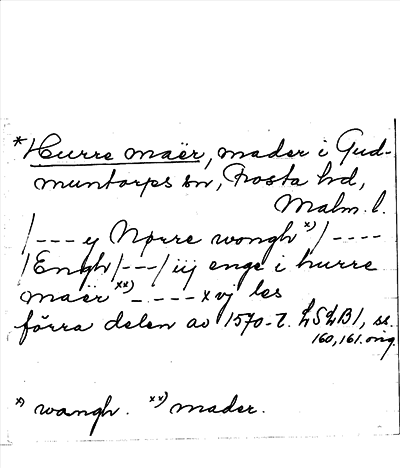 *Hurre maër, mader i Gud-
muntorps sn, Frosta hd,
Malm. l.
/--- ÿ Nørre wongh x) /----
/Engh/---/ iij enge i hurre
maër xx) ----- xvj les
förra delen av 1570-t. LSLB1, ss.
160, 161. orig.
x) wangh. xx) mader.